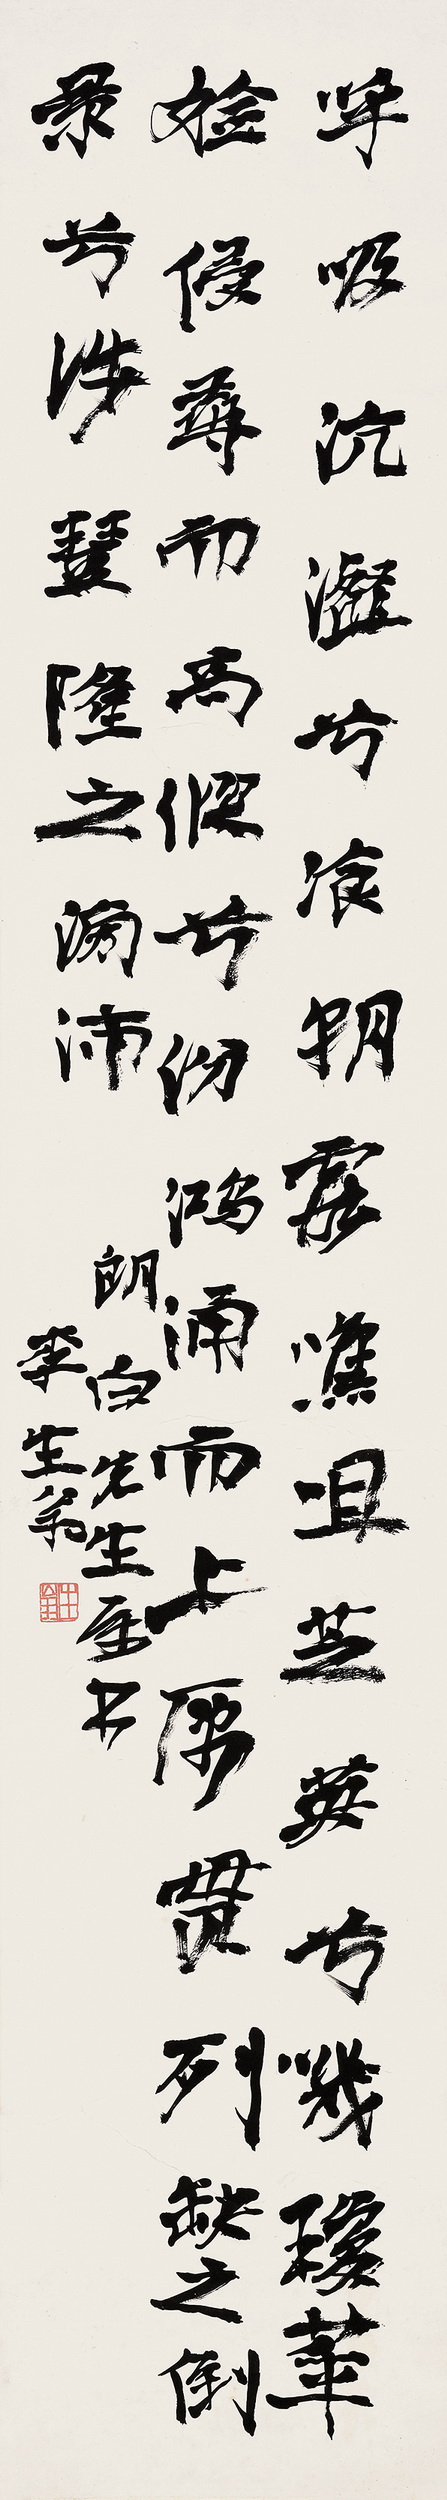 呼吸沆瀣兮飡朝霞噍咀芝英兮嘰瓊華
嬐侵尋而高縱兮紛鴻涌而上厲貫列缺之倒
景兮涉豐隆之滂沛
朗白先生属书
李生翁